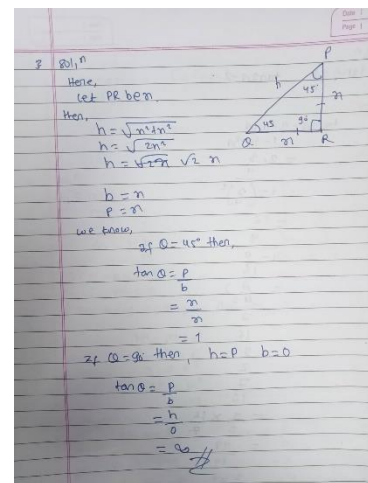 Date
Page
3 Sol,ⁿ
Here,
Let PR be n.
then,
h = √n²+n²
h = √2n²
h = √2 n
P
h
45
n
Q
45
90
n
R
b = n
P = n
we know,
If Q = 45° then,
tan Q = P/b
= n/n
= 1
If Q = 90 then, h = P b = 0
tan Q = P/b
= h/0
= ∞